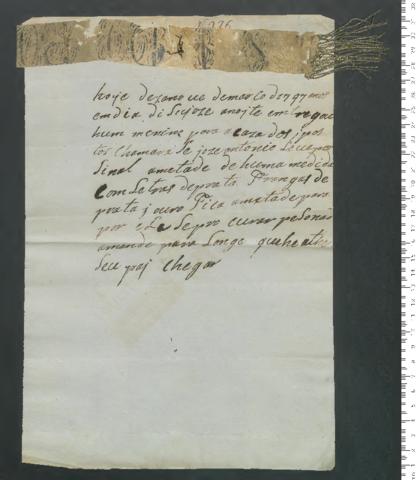 hoje dezanove de março de 1797 anos
em dia de S. joze anoite entregar
hum menino para a caza dos ispos
tos chamara Se joze Antonio Leva por
Sinal ametade de huma medida
com Letras de prata Frangas de
prata j ouro Fica ametade para
por ela Se pro curar peSo não
amande para Longe que he ate
Seu paj chegar